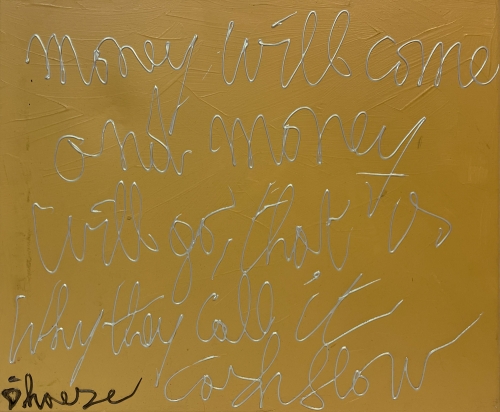 money will come
and money
will go, that is
why they call it
cashflow